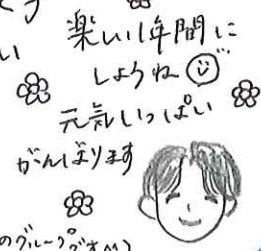 くう
楽しい1年間に
い
しようね
元気いっぱい
がんばります
のグループです